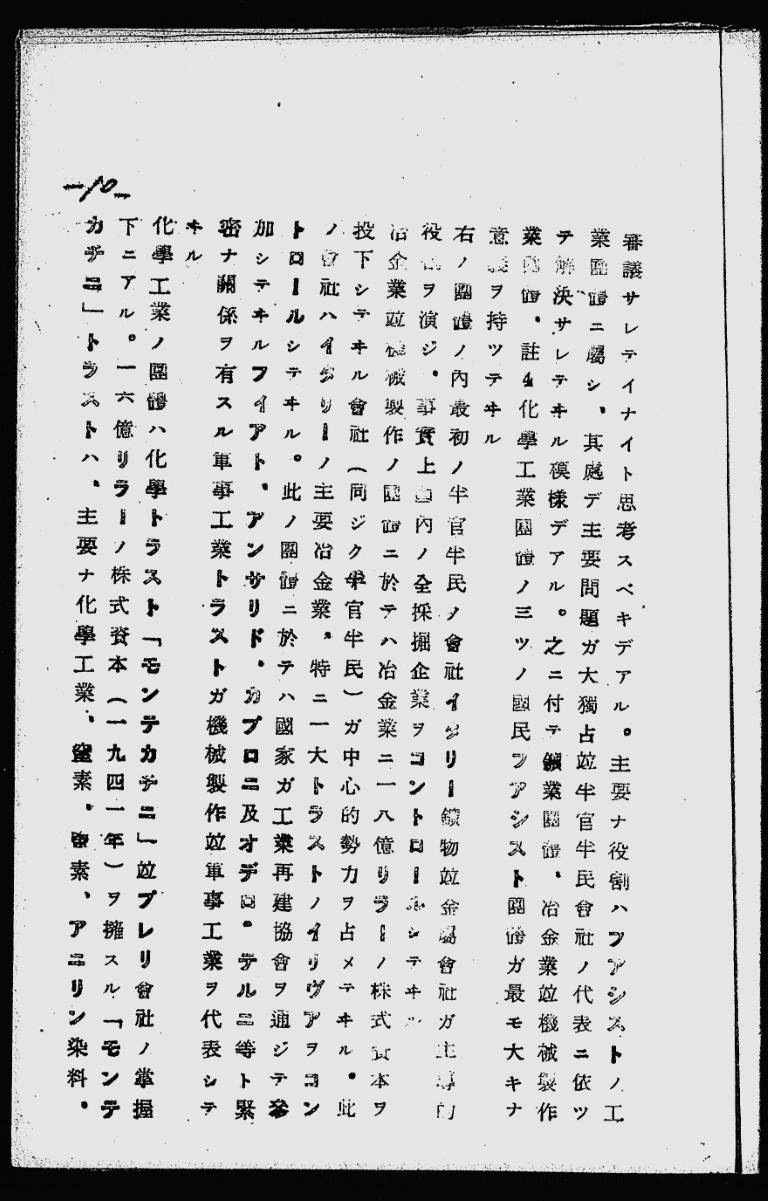 審議サレテイナイト思考スベキデアル。主要ナ役割ハフアシストノ工
業團體ニ屬シ、其處デ主要問題ガ大獨占竝半官半民會社ノ代表ニ依ツ
テ解決サレテヰル模樣デアル。之ニ付テ鑛業團體、冶金業竝機械製作
業團體、註4化學工業團體ノ三ツノ國民フアシスト團體ガ最モ大キナ
意義ヲ持ツテヰル
右ノ團體ノ内最初ノ半官半民ノ會社イタリー鑛物竝金屬會社ガ主導的
役割ヲ演ジ、事實上國内ノ全採掘企業ヲコントロールシテヰル
冶金業竝機械製作ノ團體ニ於テハ冶金業ニ一八億リラーノ株式資本ヲ
投下シテヰル會社(同ジク半官半民)ガ中心的勢力ヲ占メテヰル。此
ノ會社ハイタリーノ主要冶金業、特ニ一大トラストノイリヴアヲコン
トロールシテヰル。此ノ團體ニ於テハ國家ガ工業再建協會ヲ通ジテ參
加シテヰルフイアト、アンサリド、カプロニ及オデロ、テルニ等ト緊
密ナ關係ヲ有スル軍事工業トラストガ機械製作竝軍事工業ヲ代表シテ
ヰル
化學工業ノ團體ハ化學トラスト「モンテカチニ」竝プレリ會社ノ掌握
下ニアル。一六億リラーノ株式資本(一九四一年)ヲ擁スル「モンテ
カチニ」トラストハ、主要ナ化學工業、窒素、酸素、アニリン染料、
-10-